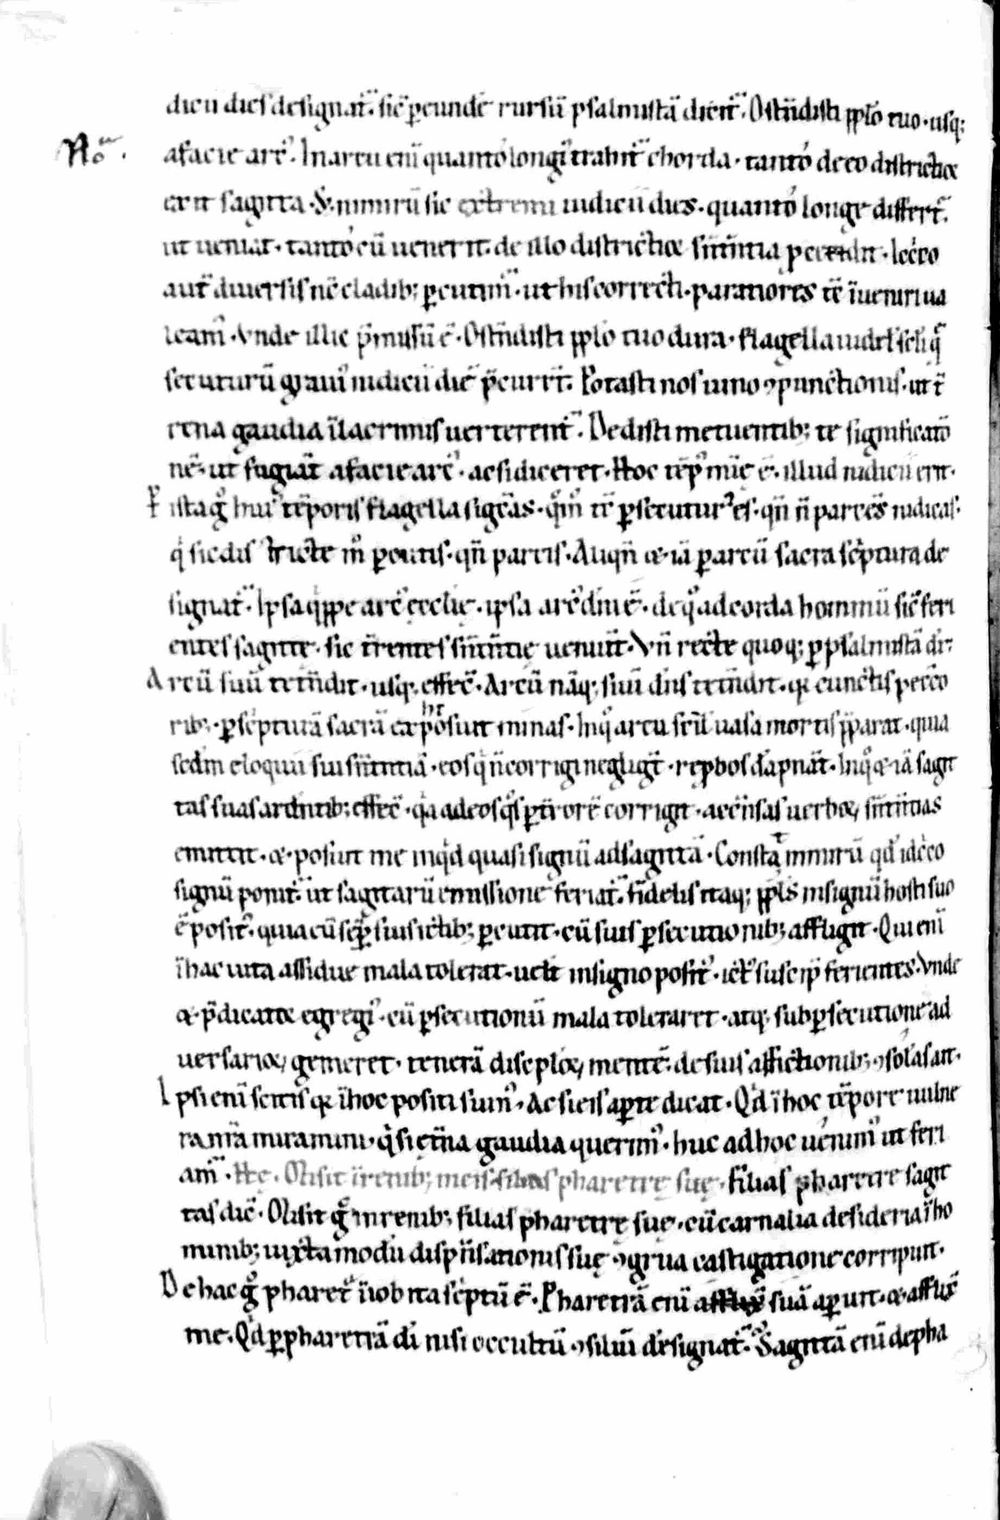 dicii dies designat͛. sic̄ ꝑ eundē rursū psalmistā dicit͛. Ostn̄disti pplo tuo. usq;
Nō. a facie arc᷒. In arcu eni quanto longi᷒ trahit͛ chorda. tanto de eo districtior
exit sagitta. Sic nimirū sic extremi iudicii dies. quanto longe differt͛.
ut ueniat. tanto cū uenerit. de illo districtior sn̄tn̄tia ꝓcedit. Iccirco
aut̄ diuersis nc̄ cladib; ꝑcutim᷒. ut his correcti. paratiores tc̄ īueniri ua
leam᷒. Vnde illic p̄missū ē. Ostn̄disti pplo tuo dura. flagella uidel; scilicet q̄
secuturū graui᷒ iudicii diē p̄currt̄. Potasti nos uino ↄpunctionis. ut t̄
rena gaudia ī lacrimis uerterent͛. Dedisti metuentib; te significatio
nē. ut fugiāt a facie arc᷒. ac si diceret. Hoc tēp᷒ mīe ē. illud iudicii erit.
P ista g̊ hui᷒ tēporis flagella sig̅cās. q̄m̊ tc̄ ꝑsecutur᷒ es. qn̄ n̄ parcēs iudicas.
q̇ sic districte m̊ ꝑcutis. qn̄ parcis. Aliqn̄ & iā ꝑ arcū sacra sc̄ptura de
signat͛. Ipsa q̇ppe arc᷒ ęcclię. ipsa arc᷒ dn̄i ē. de q̊ ad corda hominū sic̄ feri
entes sagitte. sic t̄rentes sn̄tn̄tię ueniūt. Vn̄ recte quoq; ꝑ psalmistā dr̄.
Arcū suū tetn̄dit. usq; effec̄. Arcū nāq; suū dn̄s tetn̄dit. q̇ cunctis pecc̄o
rib; ꝑ sc̄pturā sacrā exposuit minas. In q̊ arcu scil; uasa mortis p̄parat. quia
scdm eloquii sui sn̄tn̄tiā. eos q̇ n̄ corrigi negligt̄. rep̄bos dāpnat͛. In q̊ & iā sagit
tas suas ardn̄tib; effec̄. q̇a ad eos q̊s ꝑ t̄rorē corrigit. accn̄sas uerboꝝ sn̄tn̄tias
emittit. & posuit me inq̇d quasi signū ad sagittā. Constat nimirū qd̄ idc̄co
signū ponit͛. ut sagittarū emissione feriat͛. fidelis itaq; ppl's in signū hosti suo
ē posit᷒. quia cū sēp suis ictib; ꝑcutit. cū suis ꝑsecutionib; affligit. Qui enī
ī hac uita assidue mala tolerat. uelt̄ in signo posit᷒. ict᷒ suscip̄ ferientes. Vnde
& p̄dicator egregi᷒. cū ꝑsecutionū mala toleraret. atq; sub ꝑsecutione ad
uersarioꝝ gemeret. tenerā discploꝝ mentē. de suis afflictionib; ↄsolās ait.
Ipsi enī scitis q̇ ī hoc positi sum᷒. Ac si eis aꝑte dicat. Qd̄ ī hoc tēpore uulne
ra nr̄a miramini. q̇ si et̄na gaudia querim᷒. huc ad hoc uenim᷒ ut feri
am͛. Hęc. Misit ī renib; meis filias pharetre suę. filias pharetre sagit
tas dic̄. Misit g̊ in renib; filias pharetre suę. cū carnalia desideria ī ho
minib; iuxta modū dispn̄sationis suę ↄgrua castigatione corripuit.
De hac g̊ pharet̄ ī iob ita sc̄ptū ē. Pharetrā enī afflixit suā aꝑuit. & afflix̄
me. Qd̄ ꝑ pharetrā di nisi occultū ↄsiliū designat͛. Sagittā enī de pha